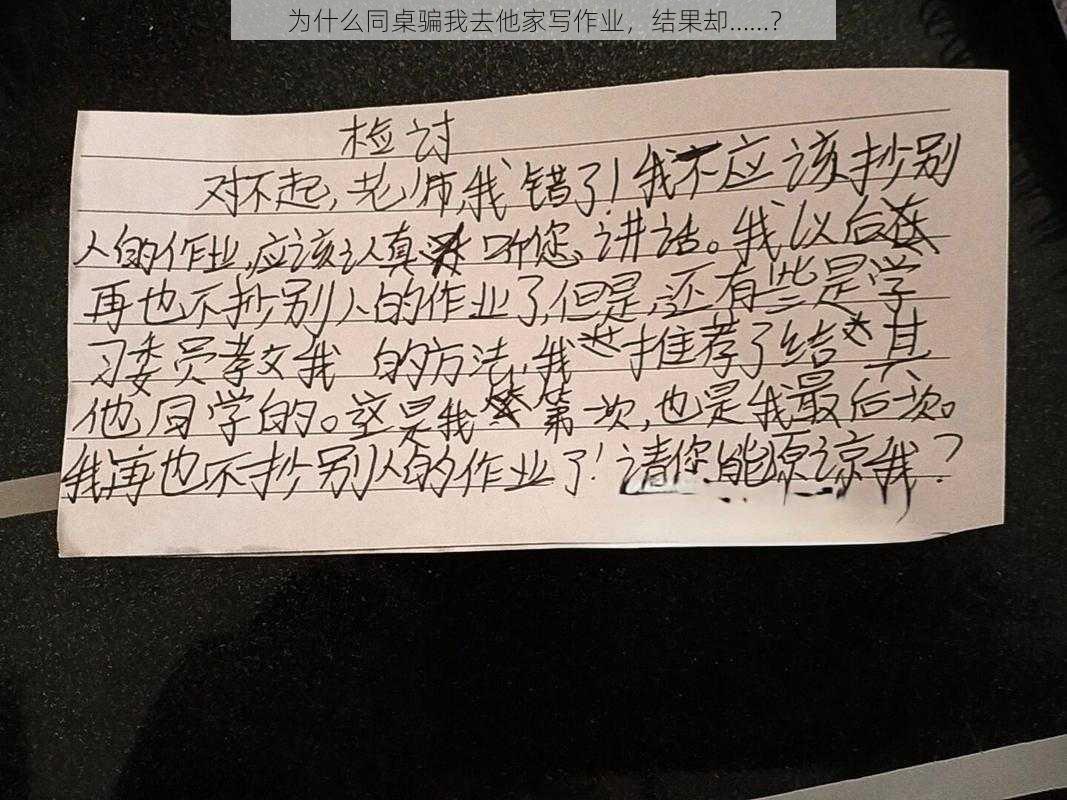 为什么同桌骗我去他家写作业，结果却……？
检讨
对不起，老师,我错了!我不应该抄别
人的作业,应该认真听您讲话。我以后
再也不抄别人的作业了,但是,还有些是学
习委员孝文我 的方法,我才推荐了给其
他同学的。这是我第一次,也是我最后一次。
我再也不抄别人的作业了!请您能原谅我?